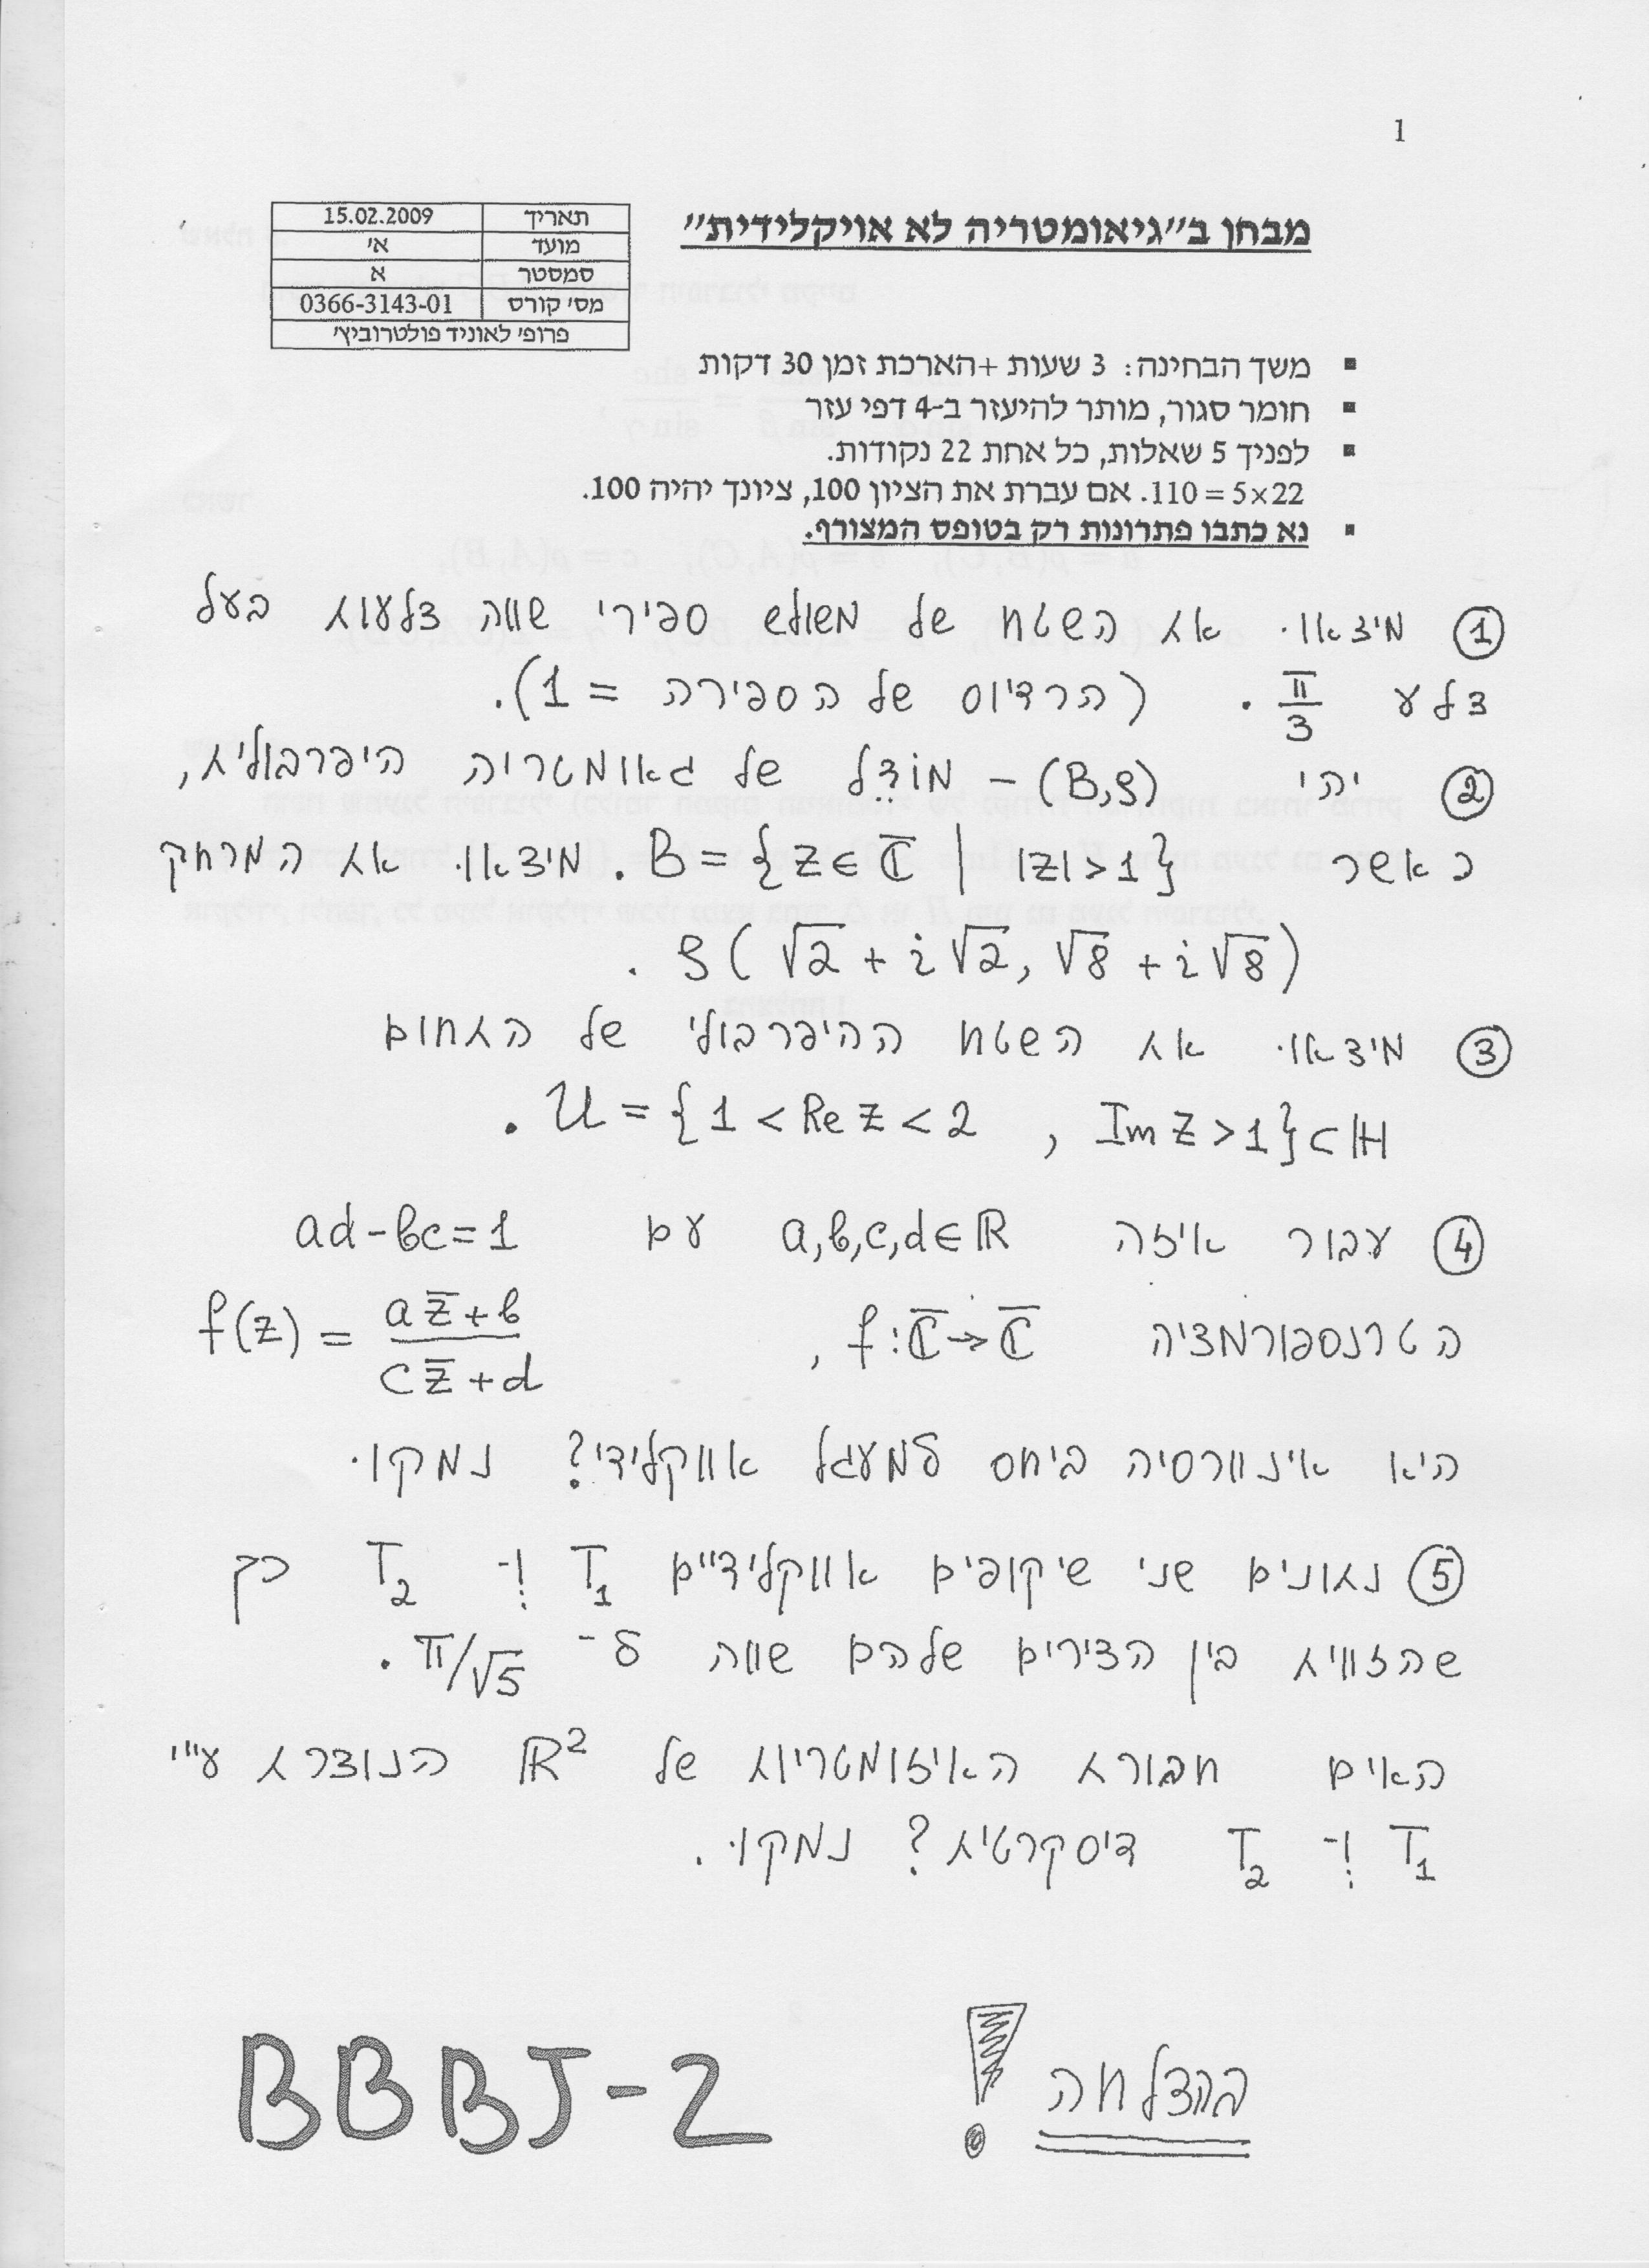 1
מבחן ב"גיאומטריה לא אויקלידית"
תאריך 15.02.2009
מועד א'
סמסטר א
מס' קורס 0366-3143-01
פרופ' לאוניד פולטרוביץ'
▪ משך הבחינה: 3 שעות +הארכת זמן 30 דקות
▪ חומר סגור, מותר להיעזר ב-4 דפי עזר
▪ לפניך 5 שאלות, כל אחת 22 נקודות.
110 = 5×22. אם עברת את הציון 100, ציונך יהיה 100.
▪ נא כתבו פתרונות רק בטופס המצורף.
① מיצאו. את השטח של משולש ספירי שווה צלעות בעל
צלע π/3. (הרדיוס של הספירה = 1).
② יהי (B,ρ) – מודל של גאומטריה היפרבולית,
כאשר B = {z∈ℂ̅ | |z|>1}. מיצאו. את המרחק
ρ(√2 + i√2, √8 + i√8).
③ מיצאו. את השטח ההיפרבולי של התחום
U = {1 < Re z < 2 , Im z > 1} ⊂ ℍ.
④ עבור איזה a,b,c,d∈ℝ עם ad-bc=1
הטרנספורמציה f:ℂ̅→ℂ̅, f(z) = (az̅+b)/(cz̅+d)
היא אינוורסיה ביחס למעגל אווקלידי? נמקו.
⑤ נתונים שני שיקופים אווקלידיים T₁ ו- T₂ כך
שהזווית בין הצירים שלהם שווה ל- π/√5.
האים חבורת האיזומטריות של ℝ² הנוצרת ע"י
T₁ ו- T₂ דיסקרטית? נמקו.
בהצלחה!
BBBJ-2